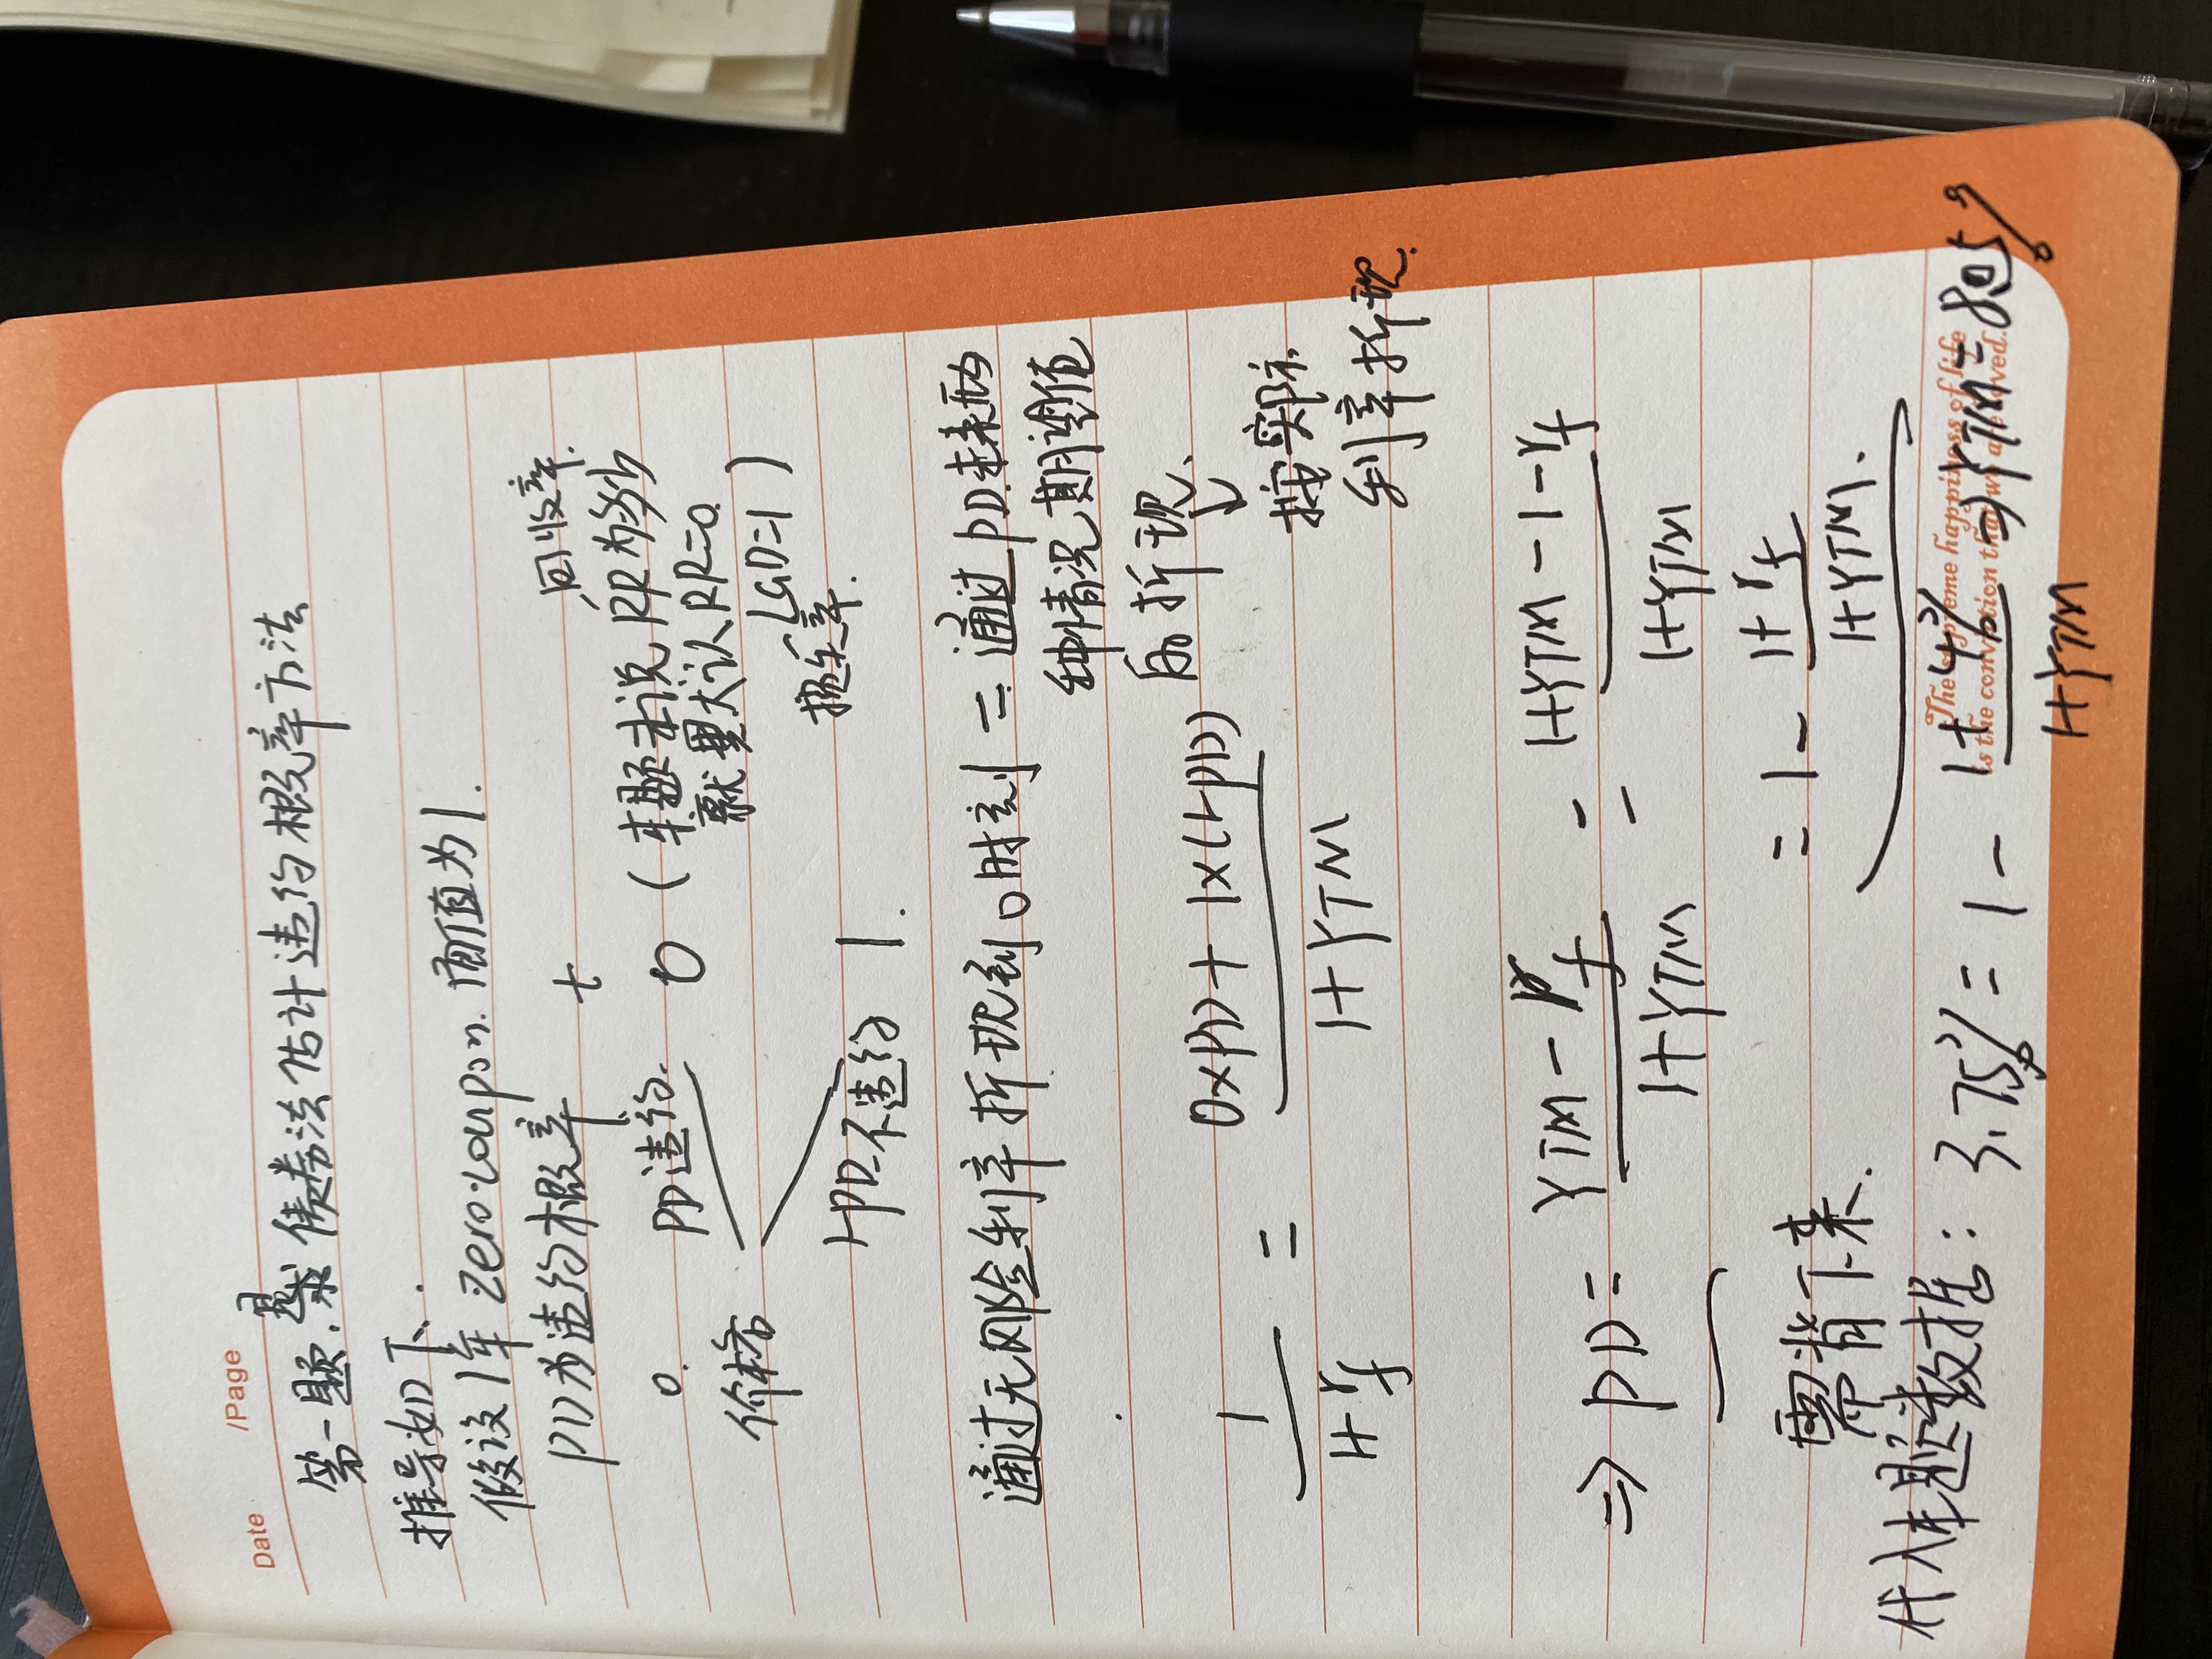 Date /Page
第一题. 是求债券法估计违约概率方法
推导如下:
假设1年 zero-coupon. 面值为1.
PD为违约概率 t 回收率.
0. PD违约. 0 (本题未说RR为多少
就默认RR=0.
价格 LGD=1)
损失率.
1-PD不违约 1.
通过无风险利率折现到0时刻 = 通过PD求两
种情况期望值
后折现、
1/(1+rf) = (0×PD+1×(1-PD))/(1+YTM) 按实际
利率折现.
⇒ PD = (YTM-rf)/(1+YTM) = (1+YTM-1-rf)/(1+YTM)
= 1 - (1+rf)/(1+YTM).
需背下来.
代入本题数据: 3.75% = 1 - (1+4%)/(1+YTM) ⇒YTM=8.05%
The supreme happiness of life
is the conviction that we are loved.